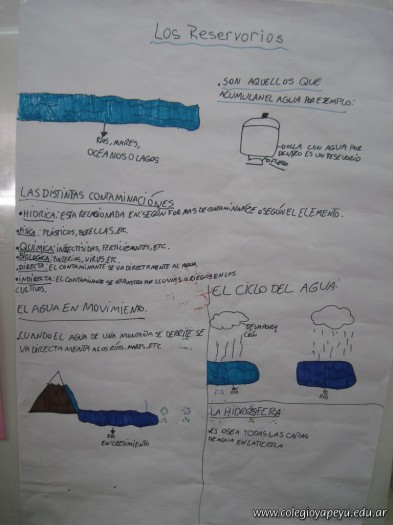 Los Reservorios
• SON AQUELLOS QUE
ACUMULAN EL AGUA POR EJEMPLO:
RÍOS, MARES,
OCÉANOS O LAGOS
OLLA CON AGUA POR
DENTRO ES UN RESERVORIO
FUEGO
LAS DISTINTAS CONTAMINACIÓNES
• HIDRICA: ESTA RELACIONADA EN: SEGÚN FORMAS DE CONTAMINARSE O SEGÚN EL ELEMENTO.
• FÍSICA: PLÁSTICOS, BOTELLAS, ETC.
• QUÍMICA: INSECTISIDAS, FERTILIZANTES, ETC.
• BIOLOGICA: BACTERIAS, VIRUS, ETC.
• DIRECTA: EL CONTAMINANTE SE VA DIRECTAMENTE AL AGUA
• INDIRECTA: EL CONTAMINANTE SE ARRASTRA POR LLUVIAS O RIEGOS EN LOS
CULTIVOS.
EL CICLO DEL AGUA:
EL AGUA EN MOVIMIENTO.
• CUANDO EL AGUA DE UNA MONTAÑA SE DERRITE SE
VA DIRECTAMENTA A LOS RÍOS, MARES, ETC
RÍO
RÍO
RÍO
EN CRESIMIENTO
LA HIDRÓSFERA:
• ES O SEA TODAS LAS CAPAS
DE AGUA EN LA TIERRA
www.colegioyapeyu.edu.ar